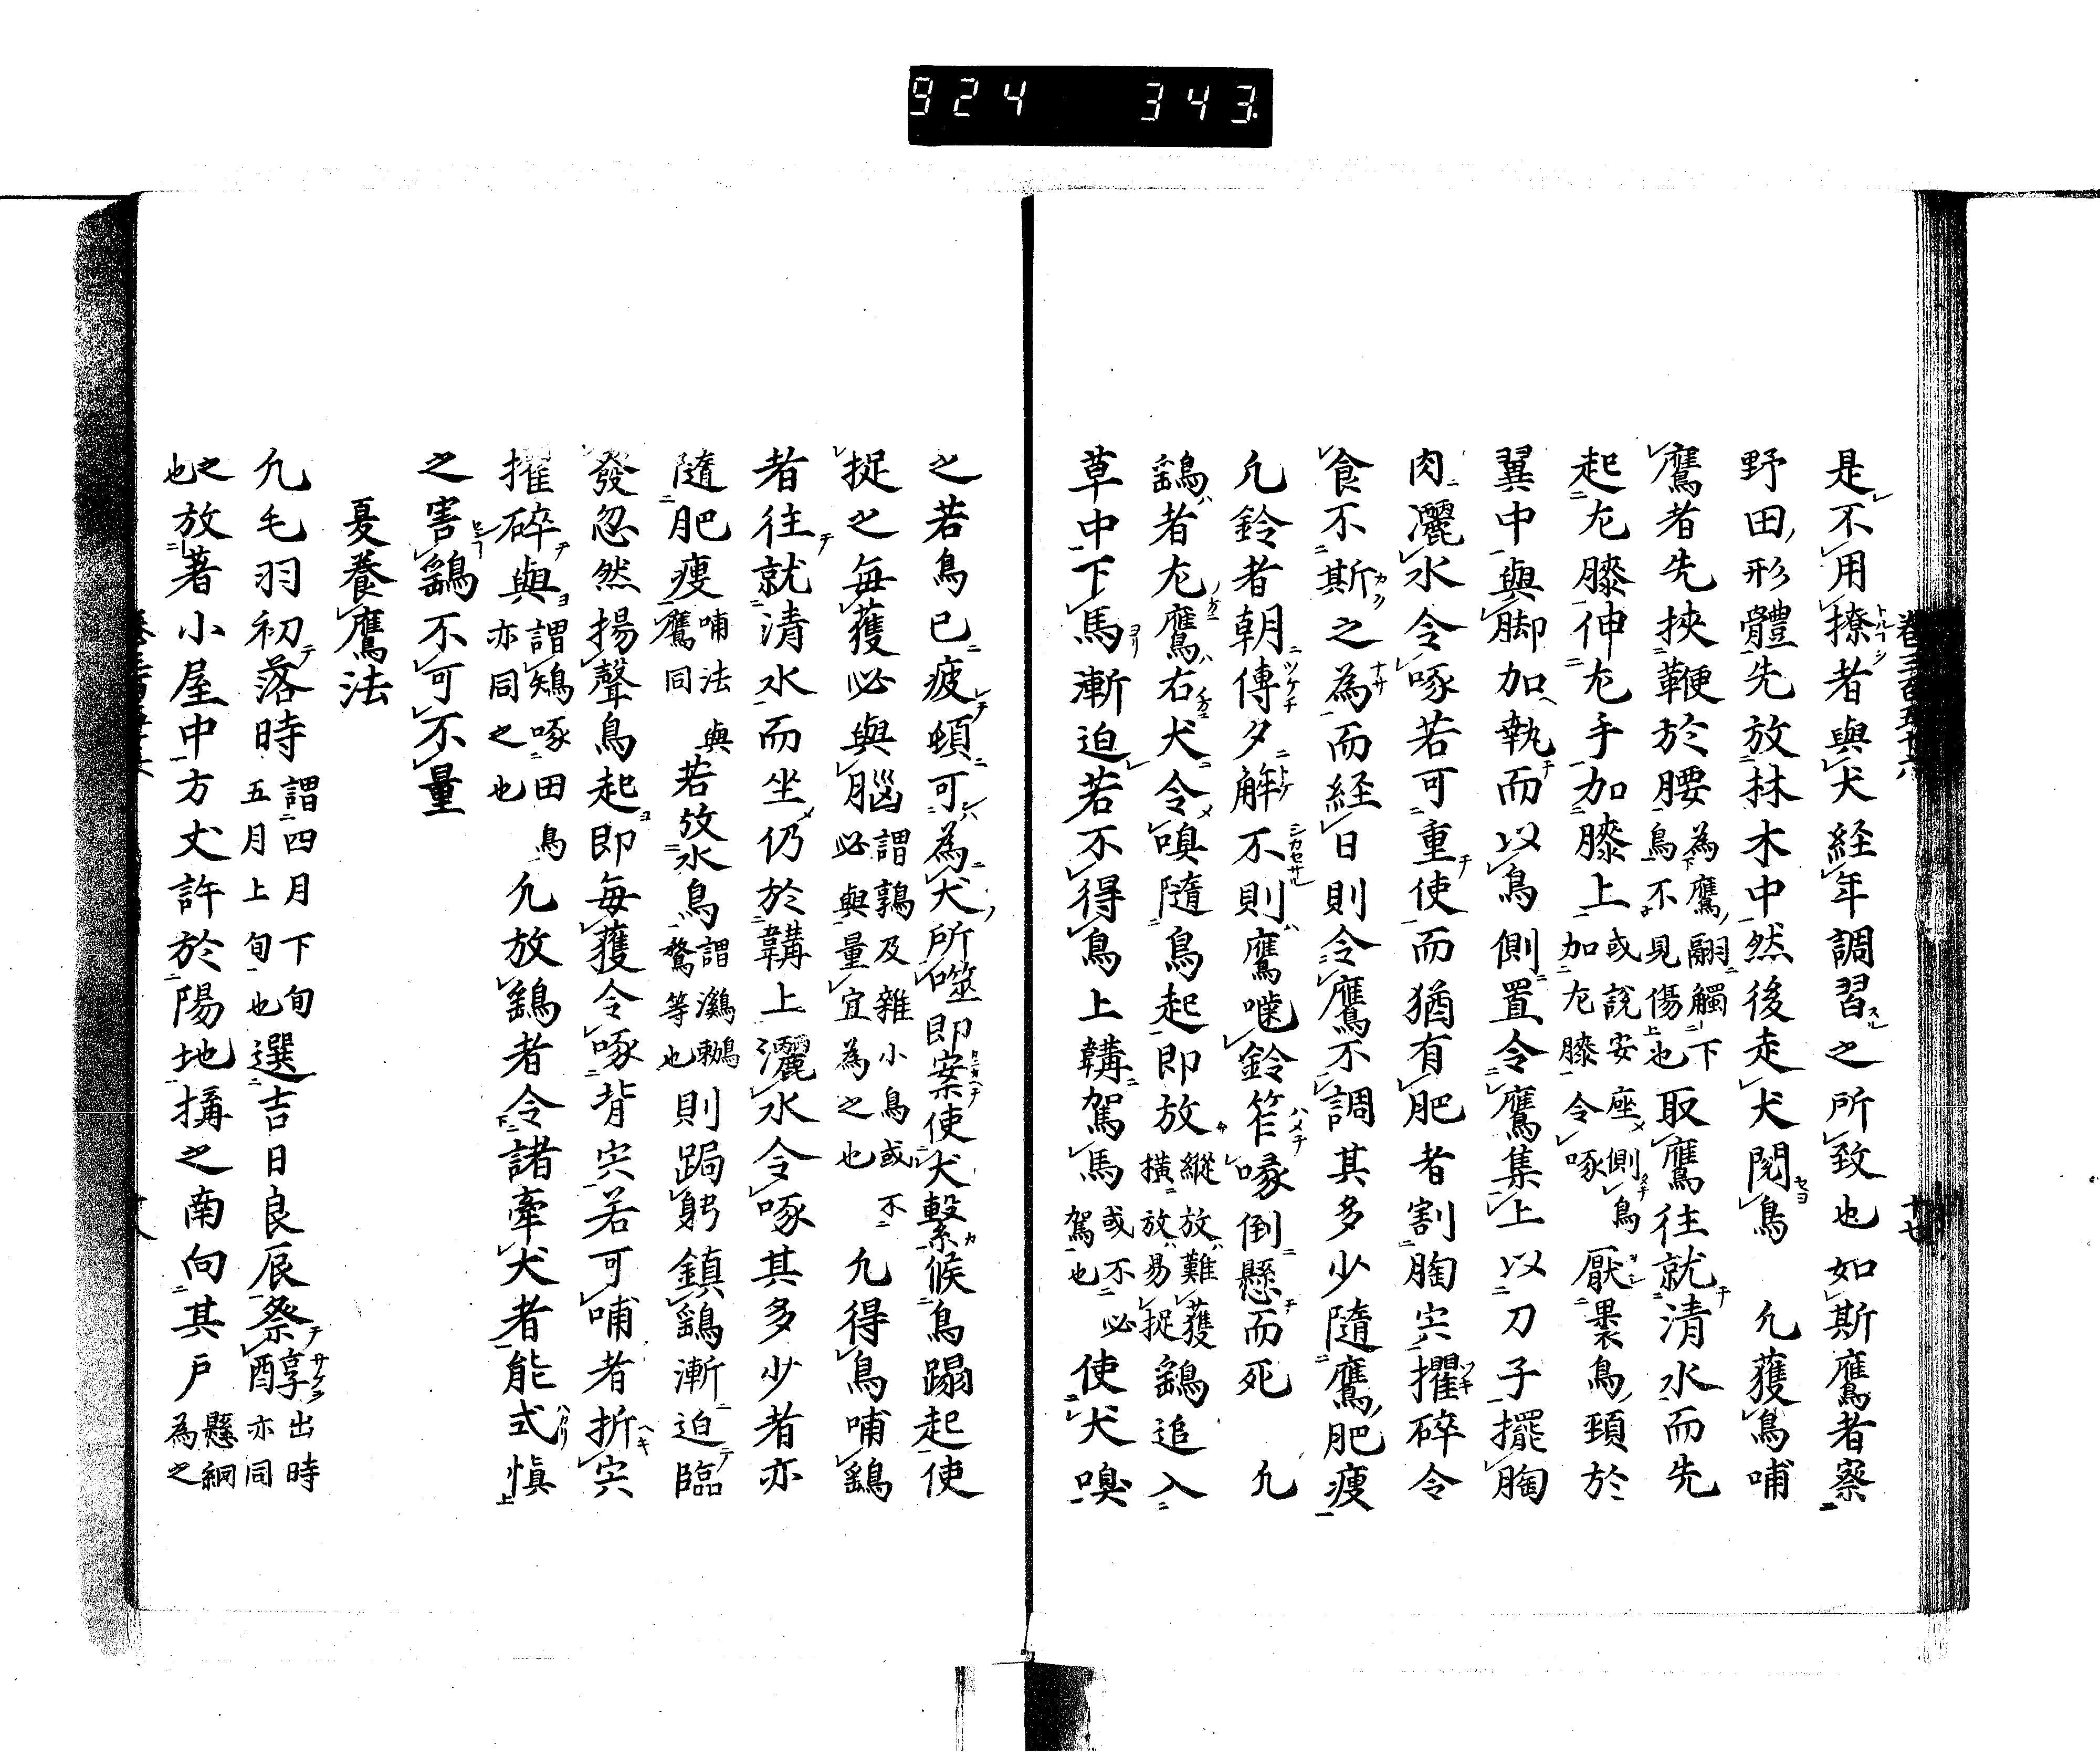 924 343.
卷三百五十六 十七
是不用撩者與犬経年調習之所致也如斯鷹者察
野田形體先放林木中然後走犬閲鳥 凢獲鳥哺
鷹者先挾鞭於腰為鷹翮觸下鳥不見傷也取鷹往就清水而先
起左膝伸左手加膝上或說安座側鳥加左膝令啄厭褁鳥頸於
翼中與脚加執而以鳥側置令鷹集上以刀子擺胸
肉灑水令啄若可重使而猶有肥者割胸宍擢碎令
食不斯之為而経日則令鷹不調其多少隨鷹肥痩
凢鈴者朝傳夕解不則鷹噛鈴笮喙倒懸而死 凢
鷂者左鷹右犬令嗅隨鳥起即放縱放難獲橫放易捉鷂追入
草中下馬漸迫若不得鳥上韝駕馬或不必駕也使犬嗅
之若鳥已疲頓可為犬所噬即案使犬繫候鳥蹋起使
捉之每獲必與腦謂鶉及雜小鳥或不必與量宜為之也 凢得鳥哺鷂
者往就清水而坐仍於韝上灑水令啄其多少者亦
隨肥痩哺法與鷹同若放水鳥謂鸂鶒鶩等也則跼躬鎮鷂漸迫臨
發忽然揚聲鳥起即每獲令啄背宍若可哺者折宍
摧碎與謂鵄啄田鳥亦同之也凢放鷂者令諸牽犬者能式愼
之害鷂不可不量
夏養鷹法
凢毛羽初落時謂四月下旬五月上旬也選吉日良辰祭酻出時亦同
之也放著小屋中方丈許於陽地搆之南向其戸懸網為之
十八